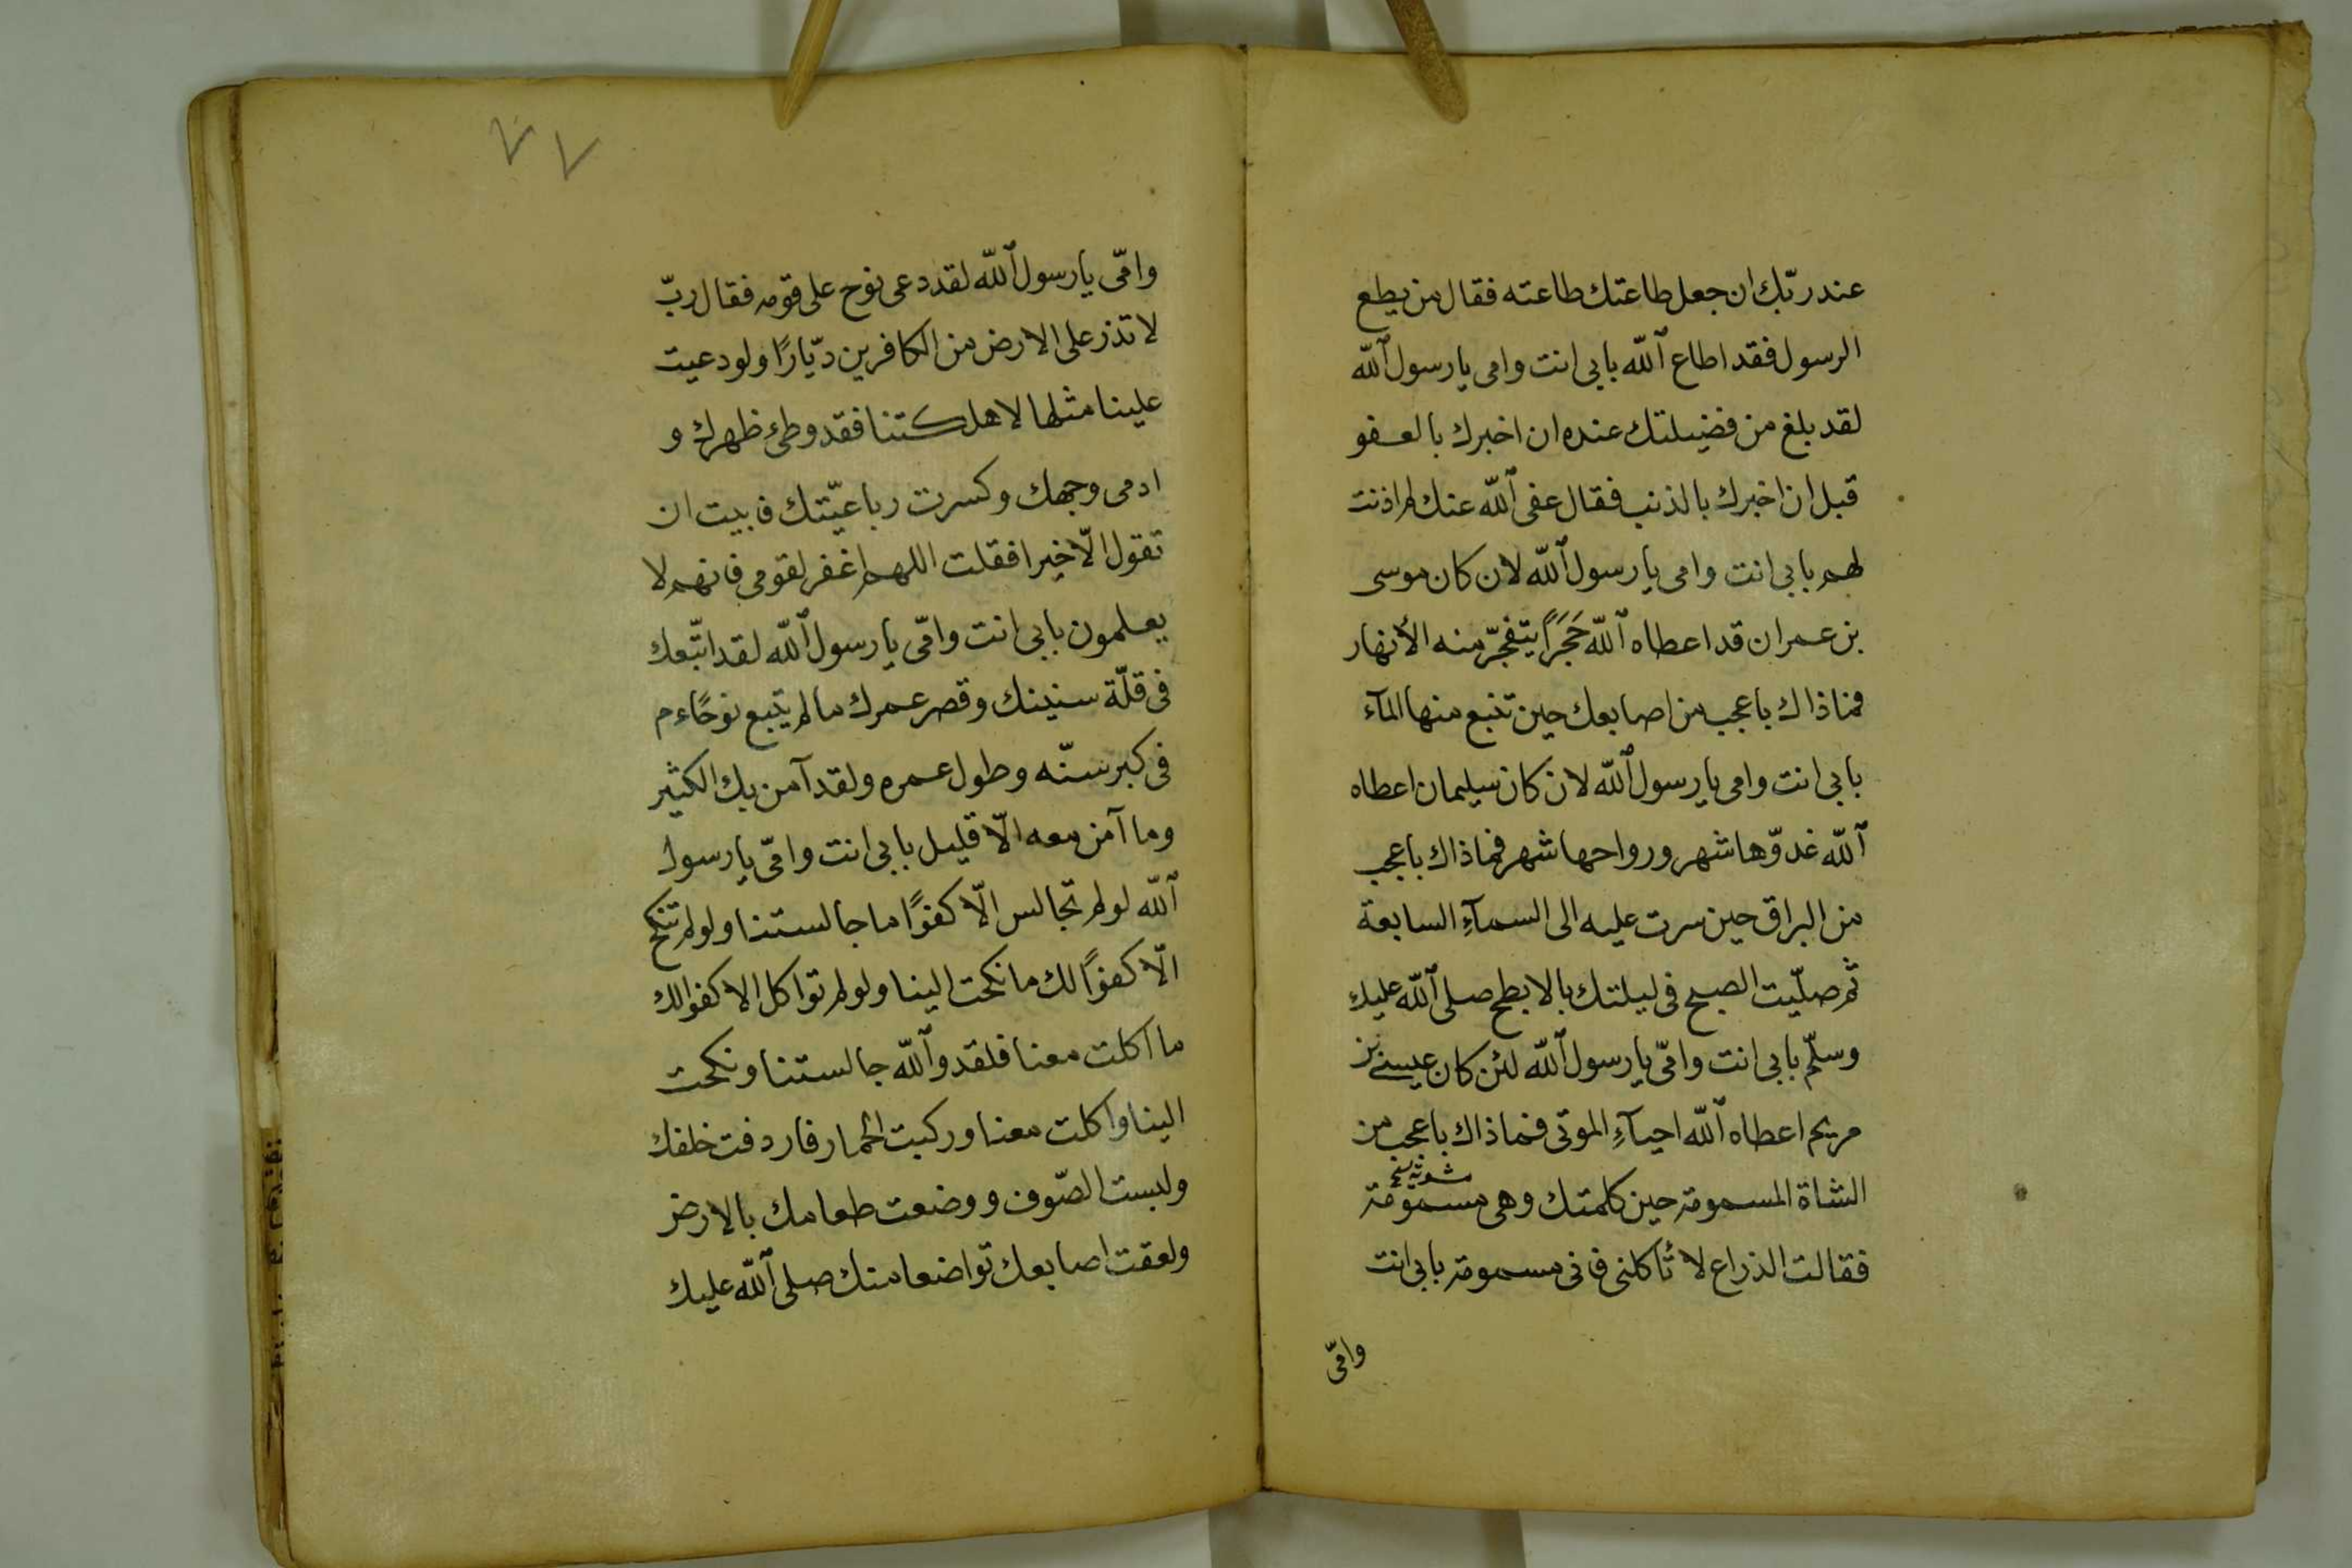 عند ربّك ان جعل طاعتك طاعته فقال من يطع
الرسول فقد اطاع الله بابى انت وامى يا رسول الله
لقد بلغ من فضيلتك عنده ان اخبرك بالعفو
قبل ان اخبرك بالذنب فقال عفى الله عنك لم اذنت
لهم بابى انت وامى يا رسول الله لان كان موسى
بن عمران قد اعطاه الله حَجَرًا يتفجّر منه الأنهار
فماذاك باعجب من اصابعك حين تنبع منها المآء
بابى انت وامى يا رسول الله لان كان سليمان اعطاه
الله غدوّها شهر ورواحها شهر فماذاك باعجب
من البراق حين سرت عليه الى السمآءِ السابعة
ثم صلّيت الصبح فى ليلتك بالابطح صلى الله عليك
وسلّم بابى انت وامّى يا رسول الله لئن كان عيسى بن
مريم اعطاه الله احيآءِ الموتى فماذاك باعجب من
مشوية نخ
الشاة المسمومة حين كلمتك وهى مسمومة
فقالت الذراع لا تأكلنى فانى مسمومة بابى انت
وامّى
٧٧
وامّى يا رسول الله لقد دعى نوح على قومه فقال ربّ
لا تذر على الارض من الكافرين ديّارًا ولو دعيت
علينا مثلها لاهلكتنا فقد وطئ ظهرك و
ادمى وجهك وكسرت رباعيّتك فابيت ان
تقول الّا خيرا فقلت اللهم اغفر لقومى فانهم لا
يعلمون بابى انت وامّى يا رسول الله لقد اتّبعك
فى قلّة سنينك وقصر عمرك ما لم يتبع نوحًا ءم
فى كبر سنّه وطول عمره ولقد آمن بك الكثير
وما آمن معه الّا قليل بابى انت وامّى يا رسول
الله لو لم تجالس الّا كفوًا ما جالستنا ولو لم تنكح
الّا كفوًا لك ما نكحت الينا ولو لم تواكل الا كفوا لك
ما اكلت معنا فلقد والله جالستنا ونكحت
الينا واكلت معنا وركبت الحمار فاردفت خلفك
ولبست الصّوف ووضعت طعامك بالارض
ولعقت اصابعك تواضعا منك صلى الله عليك